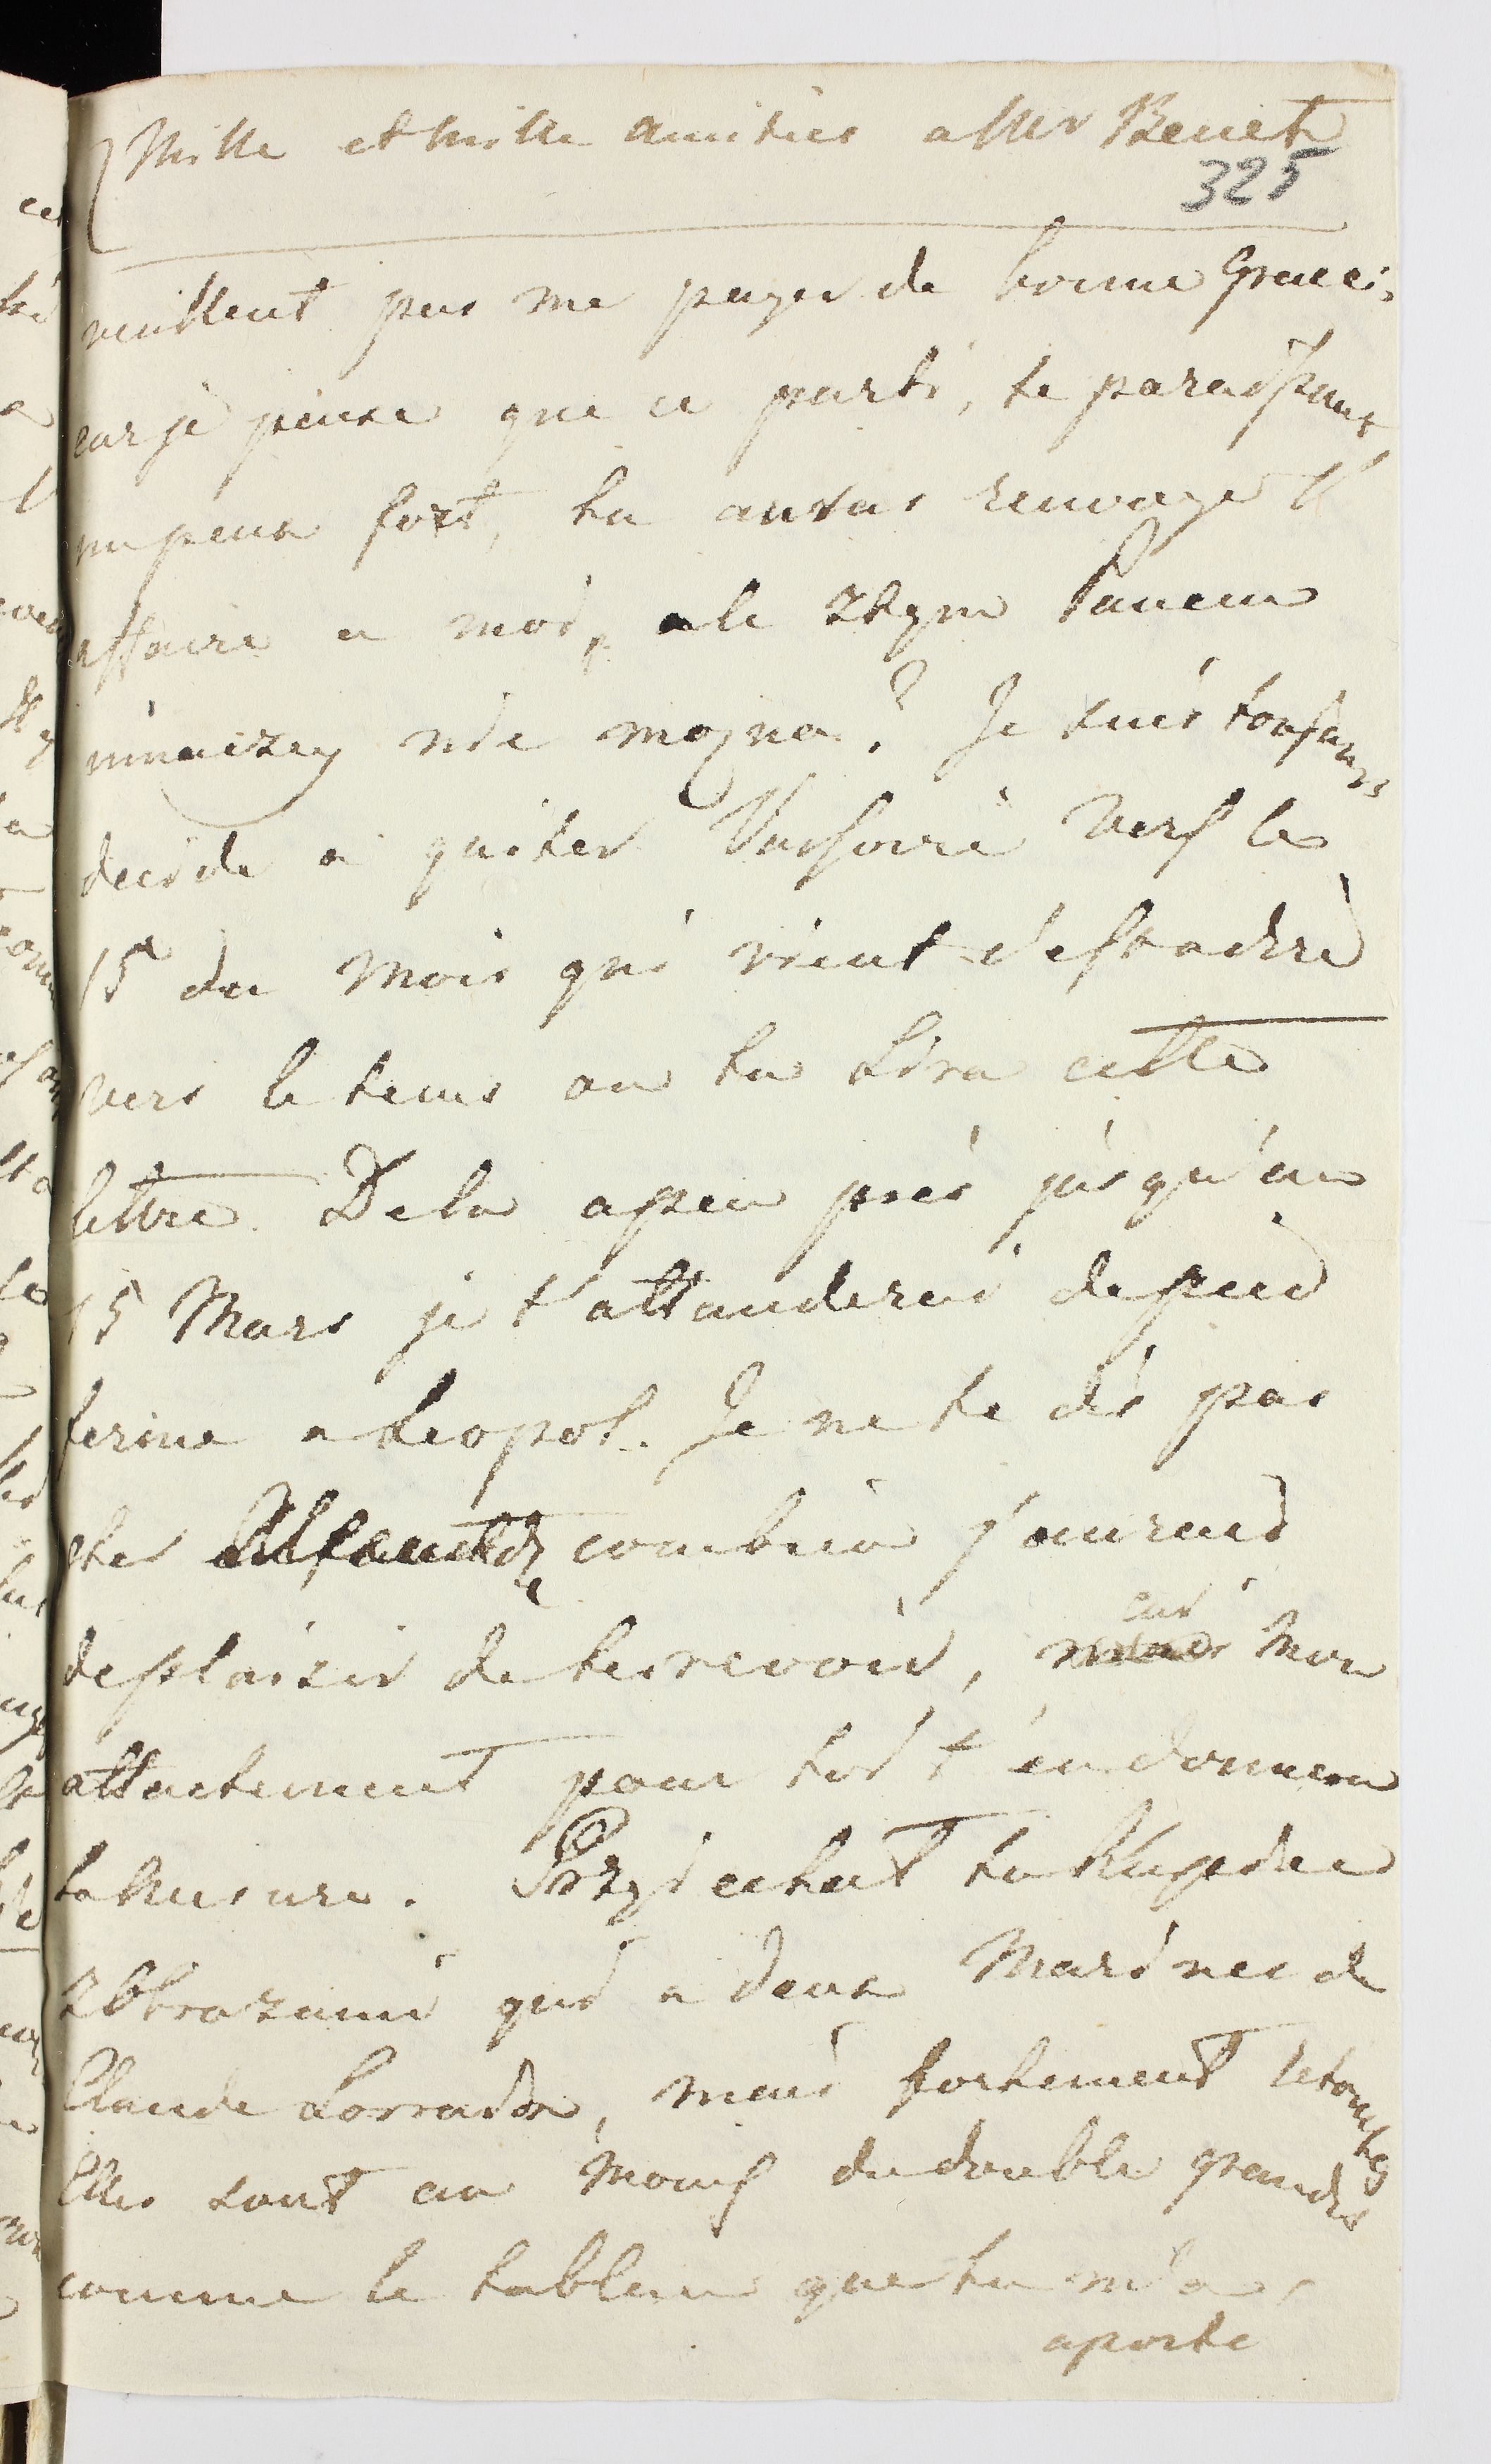 Mille et mille amities a Mr Benet
325
veuillent pas me payer de bonne Grace;
car je pense que ce parti, te paraissant
un peux fort, tu auras renvoyé l'
affaire a moi, ale z tym Panem
inaczey nie mozna? Je suis toujours
decidé a quiter Varsovie vers le
15 du Mois qui vient c'est a dire
vers le tems ou tu Lira cette
lettre. De la apeu près jusqu'au
15 Mars je t'attanderai de pied
ferme a Leopol. Je ne te dis pas
cher combien j'aurais
de plaisir de te revoir, car mon
attachement pour toi t'en donnera
la Mesure. Przyiechał tu
z Obrazami qui a deux Marines de
Claude Lorrain, mais fortement
Elles sont au moins du double grandes
comme le tableau que tu m'a
aporté